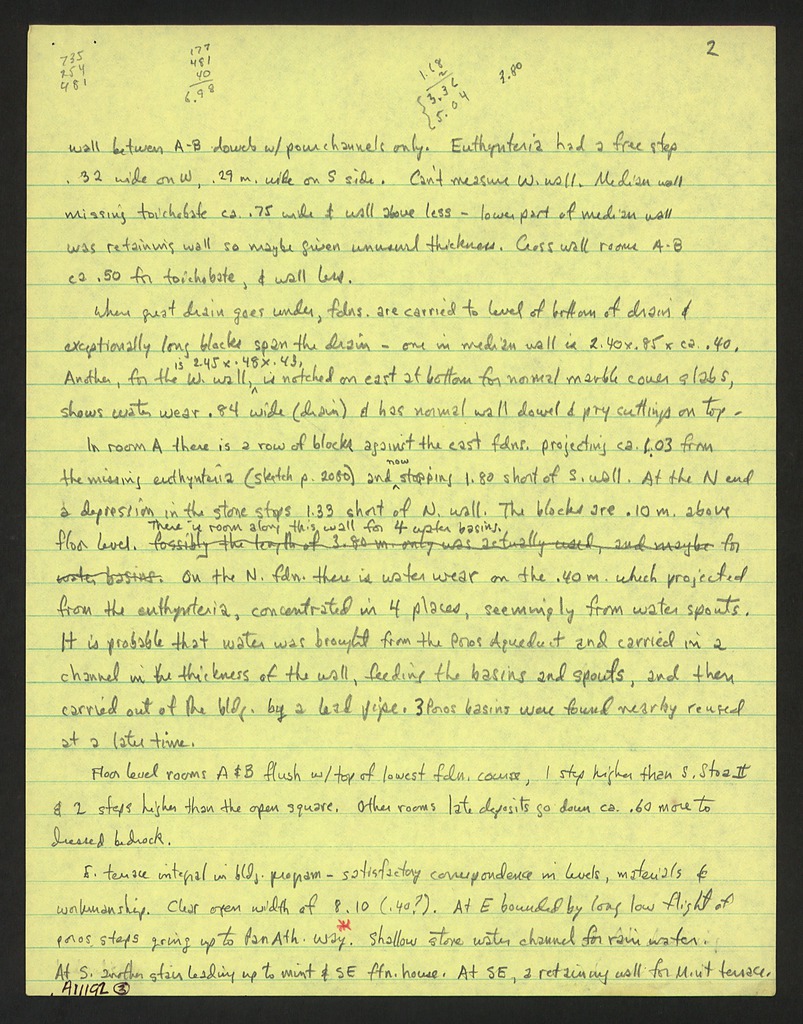 2
735
254
481
177
481
40
6.98
1.18
2
3.36
5.04
3.80
wall between A-B dowels w/ pour channels only. Euthynteria had a free step
.32 wide on W, .29 m. wide on S side. Can't measure W. wall. Median wall
missing toichobate ca. .75 wide & wall above less - lower part of median wall
was retaining wall so maybe given unusual thickness. Cross wall rooms A-B
ca .50 for toichobate, & wall less.
When great drain goes under, fdns. are carried to level of bottom of drain &
exceptionally long blocks span the drain - one in median wall is 2.40 x .85 x ca. .40.
is 2.45 x .48 x .43,
Another, for the W. wall, is notched on east at bottom for normal marble cover slabs,
shows water wear .84 wide (drain) & has normal wall dowel & pry cuttings on top -
In room A there is a row of blocks against the east fdns. projecting ca. 1.03 from
the missing euthynteria (sketch p. 2080) and now stopping 1.80 short of S. wall. At the N end
a depression in the stone stops 1.33 short of N. wall. The blocks are .10 m. above
There is room along this wall for 4 water basins.
floor level. Possibly the length of 3.80 m. only was actually used, and maybe for
water basins. On the N. fdn. there is water wear on the .40 m. which projected
from the euthynteria, concentrated in 4 places, seemingly from water spouts.
It is probable that water was brought from the Poros Aqueduct and carried in a
channel in the thickness of the wall, feeding the basins and spouts, and then
carried out of the bldg. by a lead pipe. 3 Poros basins were found nearby reused
at a later time.
Floor level rooms A & B flush w/ top of lowest fdn. course, 1 step higher than S. Stoa II
& 2 steps higher than the open square. Other rooms late deposits go down ca. .60 more to
dressed bedrock.
E. terrace integral in bldg. program - satisfactory correspondence in levels, materials &
workmanship. Clear open width of 8.10 (.40?). At E bounded by long low flight of
poros steps going up to PanAth. Way. Shallow stone water channel for rain water.
At S. another stair leading up to mint & SE ftn. house. At SE, a retaining wall for Mint terrace.
A11192 ③